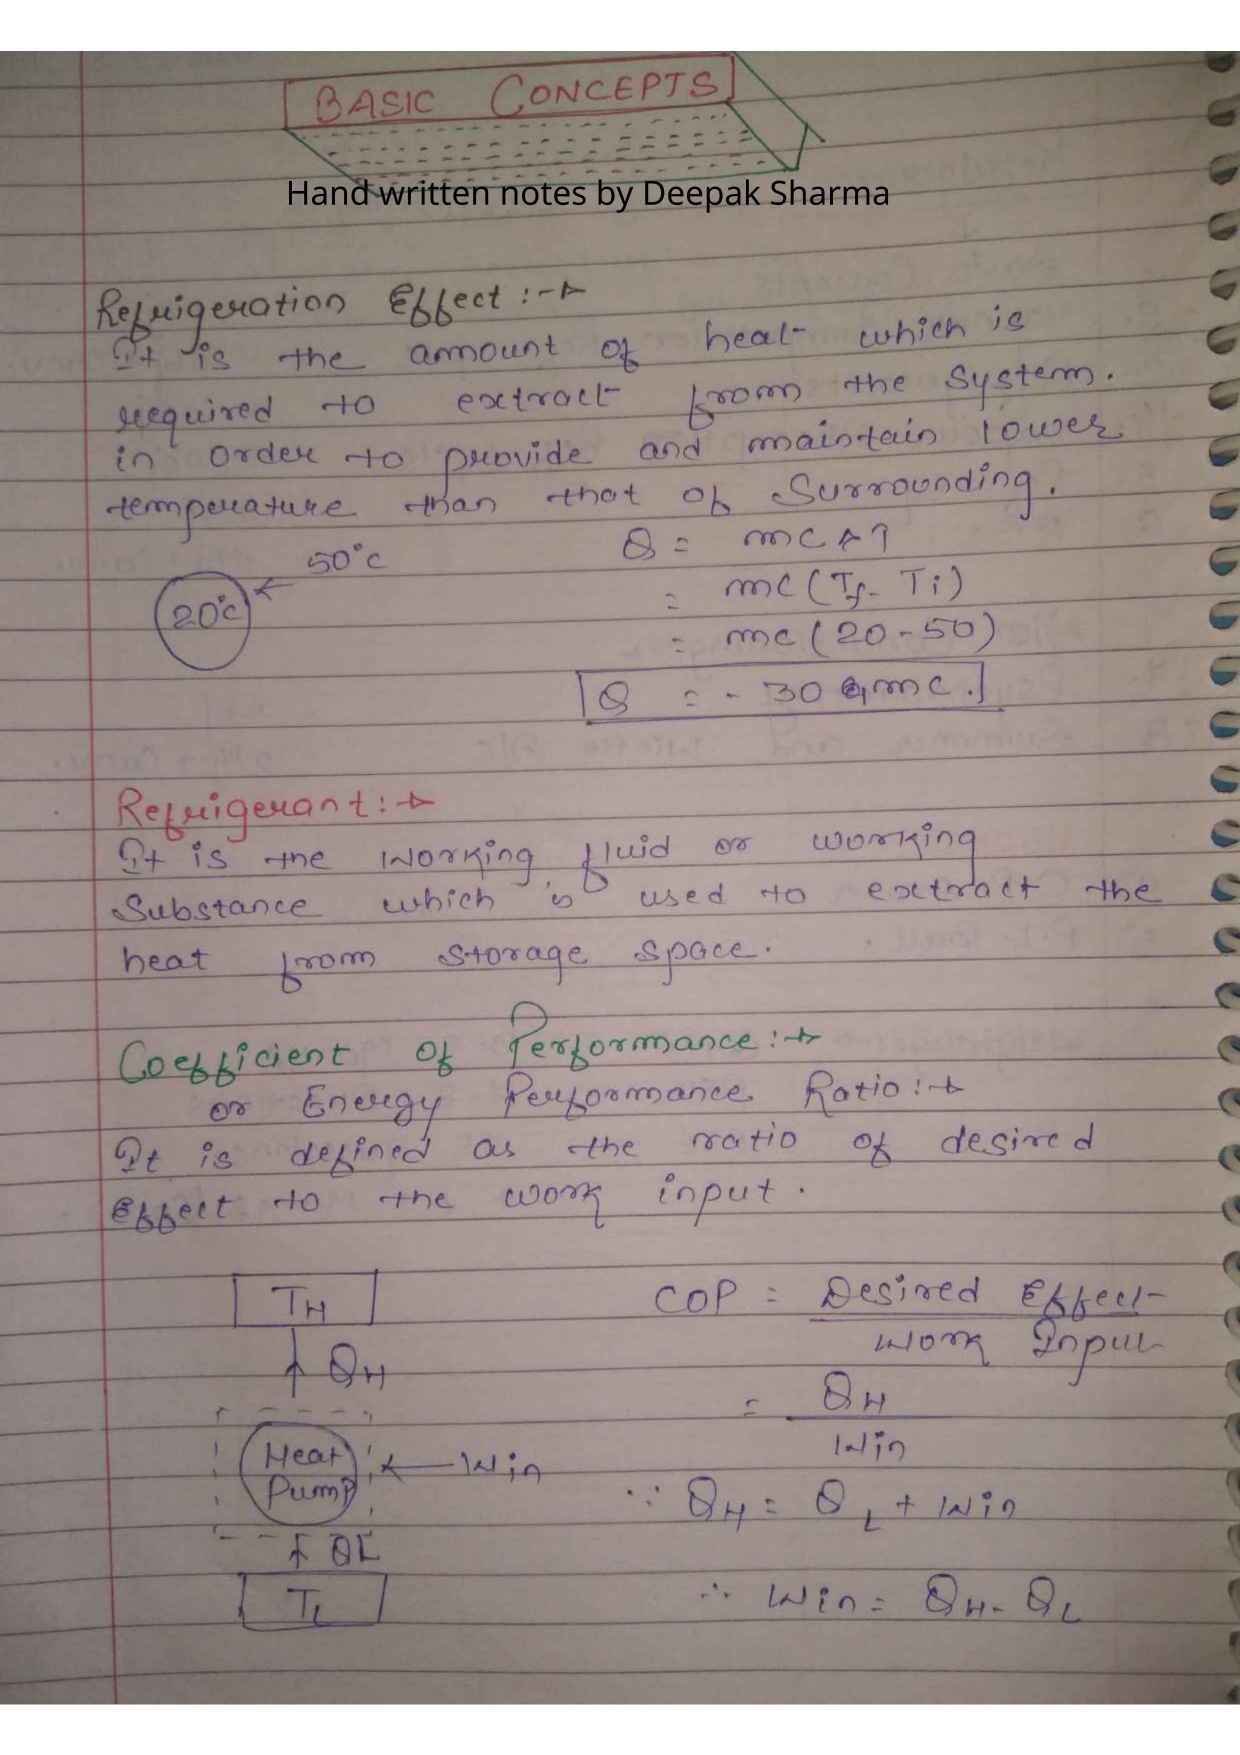 BASIC CONCEPTS
Hand written notes by Deepak Sharma
Refrigeration Effect :-
It is the amount of heat which is
required to extract from the system.
in order to provide and maintain lower
temperature than that of Surrounding.
Q = mc∆T
50°c
= mc (Tf - Ti)
20°c
= mc (20-50)
Q = - 30 mc.
Refrigerant :-
It is the working fluid or working
Substance which is used to extract the
heat from storage space.
Coefficient of Performance :-
or Energy Performance Ratio :-
It is defined as the ratio of desired
Effect to the work input.
TH
COP = Desired Effect
Work Input
QH
= QH
Win
Heat
Pump
Win
∵ QH = QL + Win
QL
TL
∴ Win = QH - QL